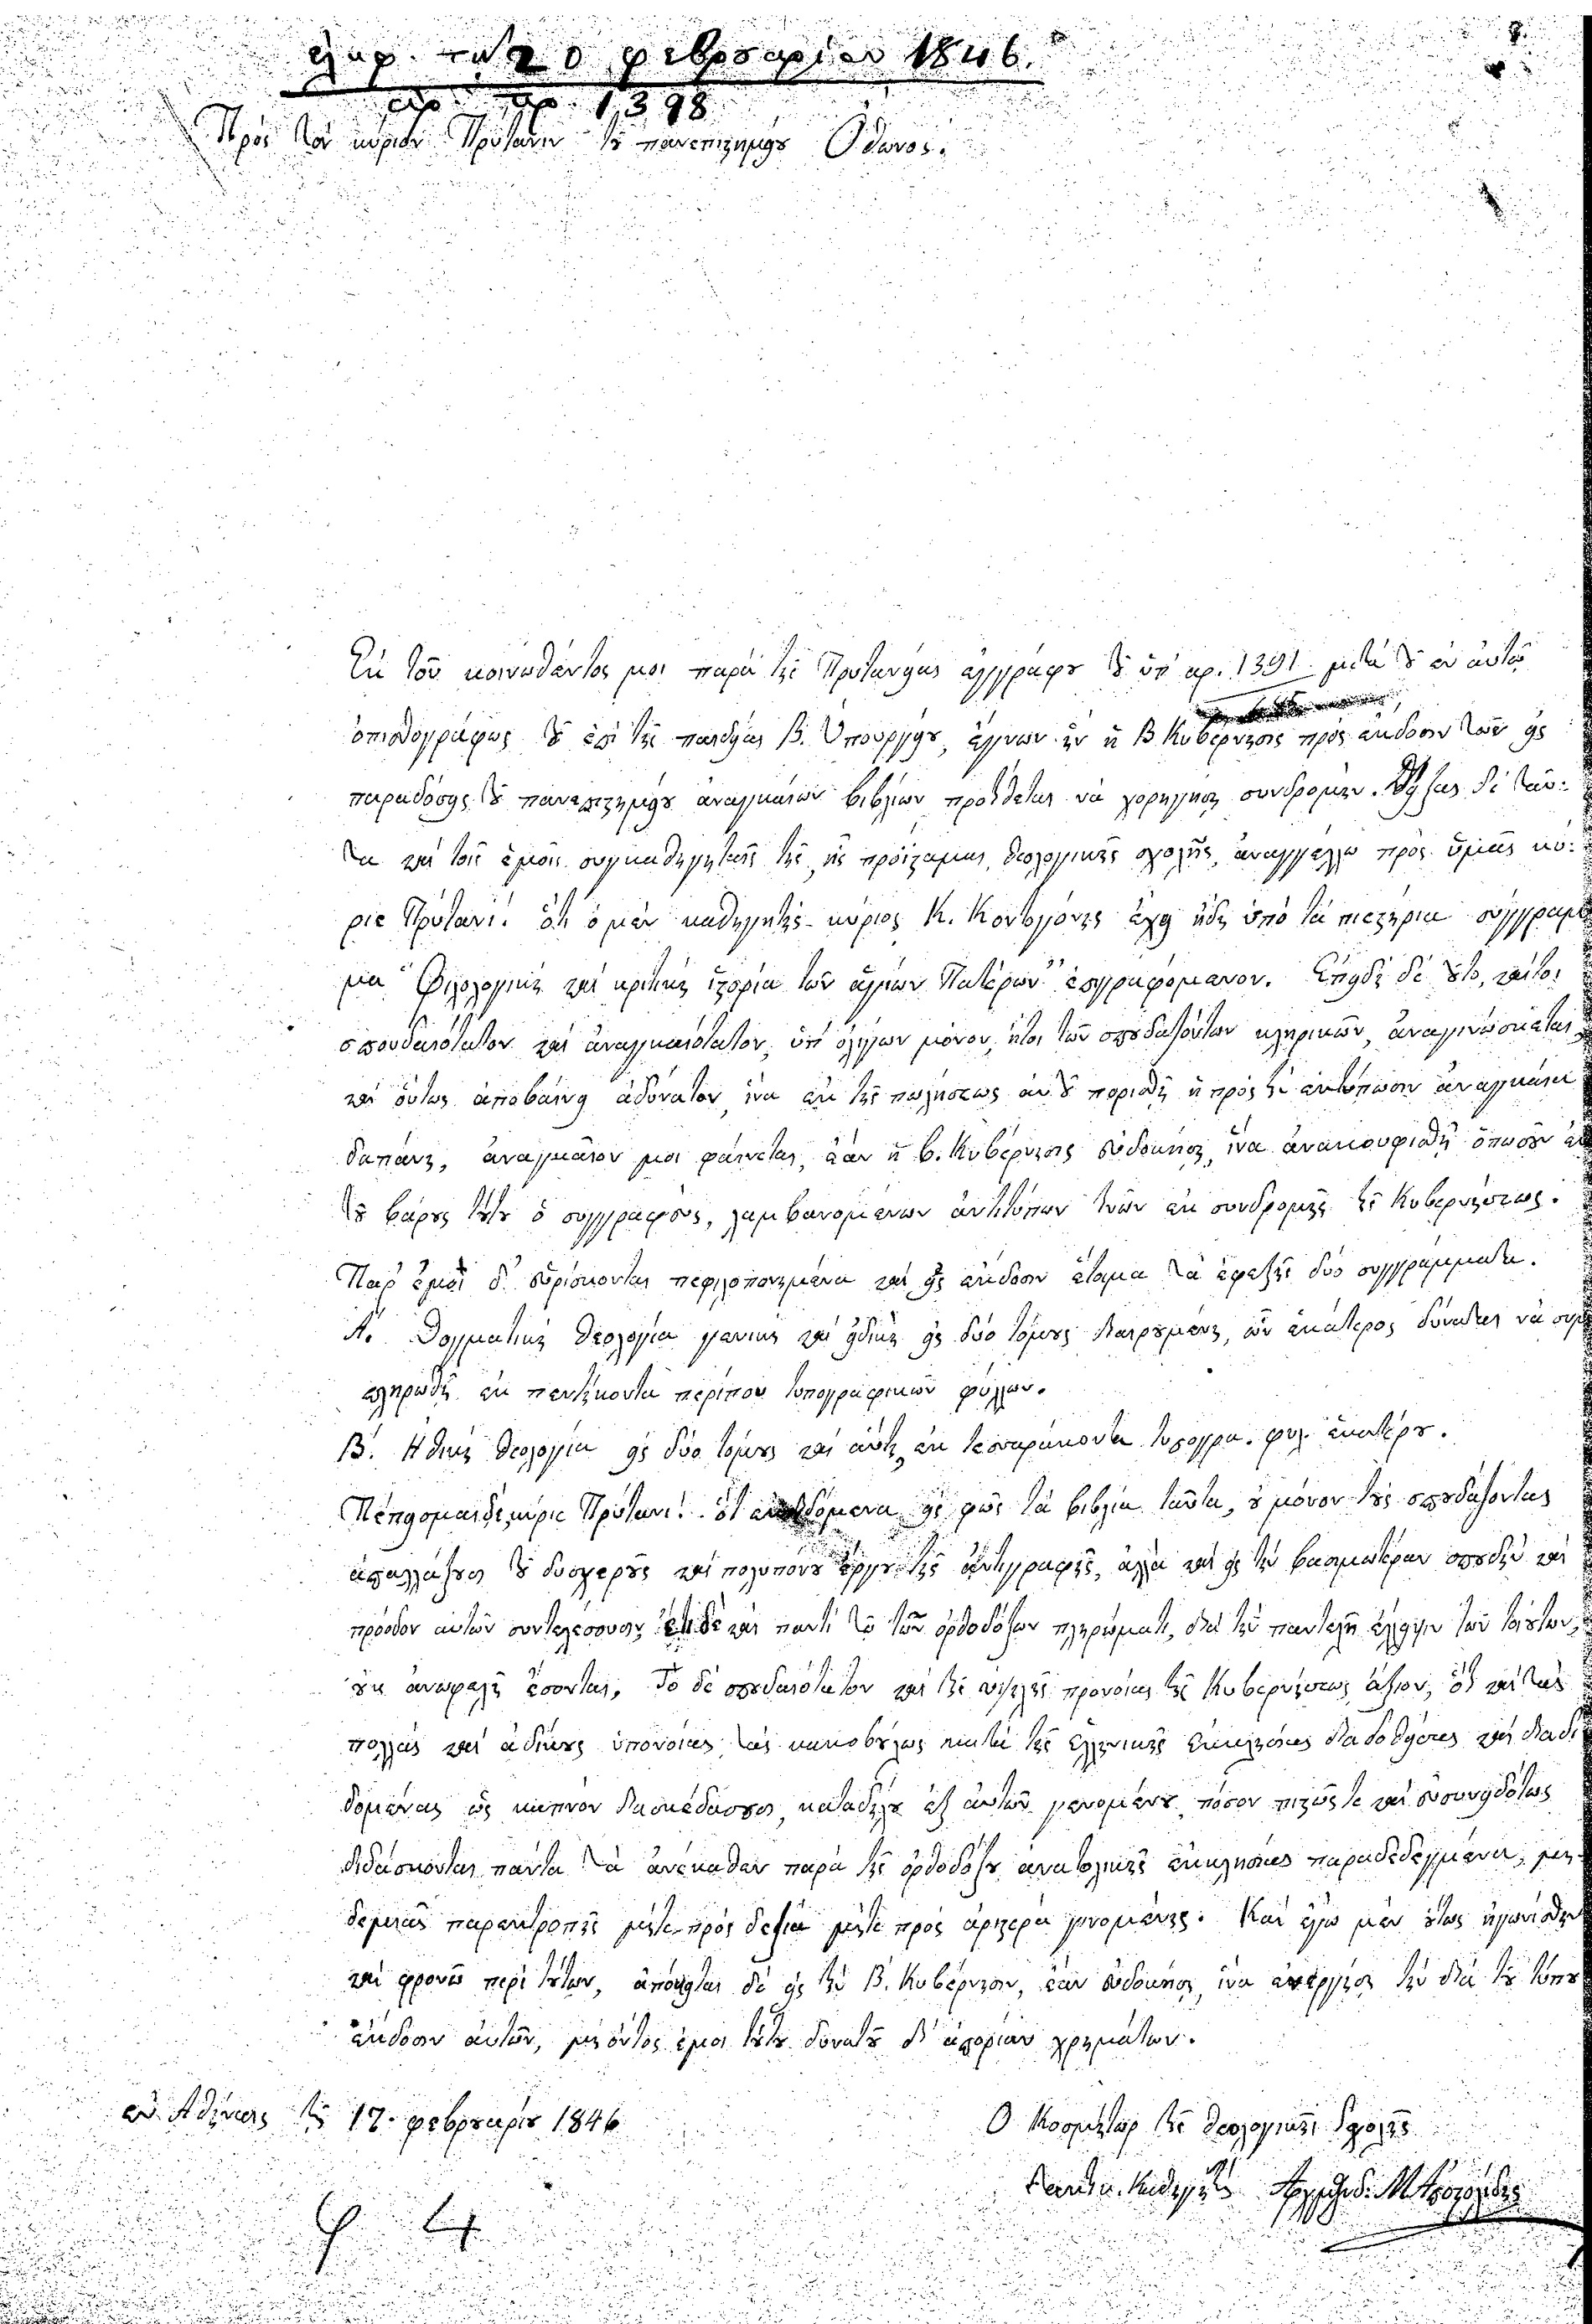 ἐλήφ. τῇ 20 φεβρουαρίου 1846.
ἀρ. πρ. 1,398
Πρὸς τὸν κύριον Πρύτανιν τοῦ πανεπιστημίου Ὄθωνος.
Ἐκ τοῦ κοινωθέντος μοι παρὰ τῆς Πρυτανείας ἐγγράφου τοῦ ὑπ' ἀρ. 1391 μετὰ τοῦ ἐν αὐτῷ
ὀπισθογράφως τοῦ ἐπὶ τῆς παιδείας Β. Ὑπουργείου, ἔγνων ἣν ἡ Β Κυβέρνησις πρὸς ἔκδοσιν τῶν εἰς
παραδόσεις τοῦ πανεπιστημίου ἀναγκαίων βιβλίων προτίθεται νὰ χορηγήσῃ συνδρομήν. δὲ ταῦ:
τα καὶ τοῖς ἐμοῖς συγκαθηγηταῖς τῆς, ἧς προΐσταμαι, θεολογικῆς σχολῆς, ἀναγγέλλω πρὸς ὑμᾶς κύ:
ριε Πρύτανι! ὅτι ὁ μὲν καθηγητὴς κύριος Κ. Κοντογόνης ἔχει ἤδη ὑπὸ τὰ πιεστήρια σύγγραμ
μα "Φιλολογικὴ καὶ κριτικὴ ἱστορία τῶν ἁγίων Πατέρων" ἐπιγραφόμενον. Ἐπειδὴ δὲ τοῦτο, καίτοι
σπουδαιότατον καὶ ἀναγκαιότατον, ὑπ' ὀλίγων μόνον, ἤτοι τῶν σπουδαζόντων κληρικῶν, ἀναγινώσκεται,
καὶ οὕτως ἀποβαίνει ἀδύνατον, ἵνα ἐκ τῆς πωλήσεως αὐτοῦ πορισθῇ ἡ πρὸς τὴν ἐκτύπωσιν ἀναγκαία
δαπάνη, ἀναγκαῖον μοι φαίνεται, ἐὰν ἡ Β. Κυβέρνησις εὐδοκήσῃ, ἵνα ἀνακουφισθῇ ὁπωσοῦν ἐκ
τοῦ βάρους τούτου ὁ συγγραφεύς, λαμβανομένων ἀντιτύπων τινῶν ἐκ συνδρομῆς τῆς Κυβερνήσεως.
Παρ' ἐμοὶ δ' εὑρίσκονται πεφιλοπονημένα καὶ εἰς ἔκδοσιν ἕτοιμα τὰ ἐφεξῆς δύο συγγράμματα.
Α. Δογματικὴ θεολογία γενικὴ καὶ εἰδικὴ εἰς δύο τόμους διαιρουμένη, ὧν ἑκάτερος δύναται νὰ συμ
πληρωθῇ ἐκ πεντήκοντα περίπου τυπογραφικῶν φύλλων.
Β. Ἠθικὴ θεολογία εἰς δύο τόμους καὶ αὐτὴ, ἐκ τεσσαράκοντα τυπογρα. φύλ. ἑκατέρου.
Πέπεισμαι δὲ, κύριε Πρύτανι! ὅτι ἐκδιδόμενα εἰς φῶς τὰ βιβλία ταῦτα, οὐ μόνον τοὺς σπουδάζοντας
ἀπαλλάξουσι τοῦ δυσχεροῦς καὶ πολυπόνου ἔργου τῆς ἀντιγραφῆς, ἀλλὰ καὶ εἰς τὴν βασιμωτέραν σπουδὴν καὶ
πρόοδον αὐτῶν συντελέσουσιν, ἔτι δὲ καὶ παντὶ τῷ τῶν ὀρθοδόξων πληρώματι, διὰ τὴν παντελῆ ἔλλειψιν τῶν τοιούτων,
οὐκ ἀνωφελῆ ἔσονται. Τὸ δὲ σπουδαιότατον καὶ τῆς ὑψηλῆς προνοίας τῆς Κυβερνήσεως ἄξιον, ὅτι καὶ τὰς
πολλὰς καὶ ἀδίκους ὑπονοίας, τὰς κακοβούλως κατὰ τῆς ἑλληνικῆς ἐκκλησίας διαδοθείσας καὶ διαδι
δομένας ὡς καπνὸν διασκεδάσουσι, καταδήλου ἐξ αὐτῶν γενομένου, πόσον πιστῶς τε καὶ εὐσυνειδότως
διδάσκονται πάντα τὰ ἀνέκαθεν παρὰ τῆς ὀρθοδόξου ἀνατολικῆς ἐκκλησίας παραδεδεγμένα, μη-
δεμιᾶς παρεκτροπῆς μήτε πρὸς δεξιὰ μήτε πρὸς ἀριστερὰ γινομένης. Καὶ ἐγὼ μὲν οὕτως ἠγωνίσθην
καὶ φρονῶ περὶ τούτων, ἀπόκειται δὲ εἰς τὴν Β. Κυβέρνησιν, ἐὰν εὐδοκήσῃ, ἵνα ἐνεργήσῃ τὴν διὰ τοῦ τύπου
ἔκδοσιν αὐτῶν, μὴ ὄντος ἐμοὶ τούτου δυνατοῦ δι' ἀπορίαν χρημάτων.
ἐν Ἀθήναις τῇ 17. φεβρουαρίου 1846
Ὁ Κοσμήτωρ τῆς θεολογικῆς Σχολῆς
Μ. Ἀποστολίδης